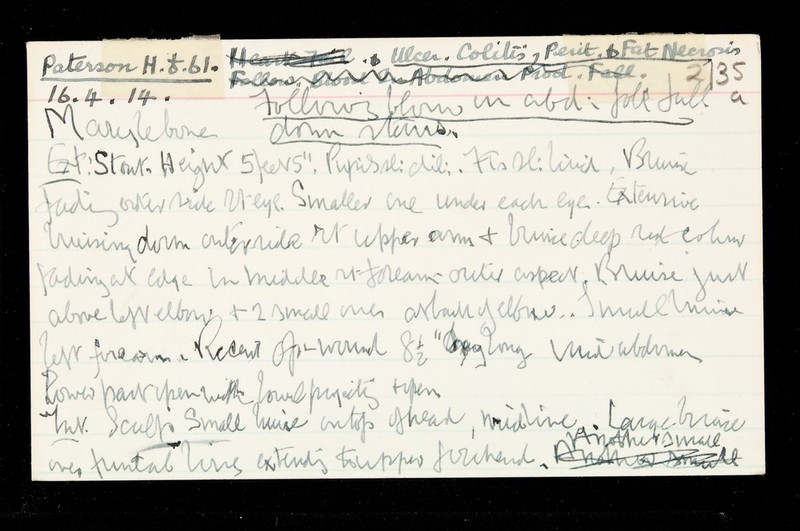 Paterson H. f. 61. Heart Fail. & Ulcer. Colitis, Perit. & Fat Necrosis
Follow. blow in Abdomen Prod. Fall. 2/35
16.4.14. Following blow in abd: foll fall a
Marylebone down stairs.
Ext: Stout. Height 5 feet 5". Pupils sli: dil:. F's sli: livid. Bruise
fading outer side Rt eye. Smaller one under each eye. Extensive
bruising down outer side Rt upper arm + bruise deep red colour
fading at edge in middle rt forearm outer aspect. Bruise just
above left elbow + 2 small ones at back of elbow. Small bruise
left forearm. Recent op: wound 8½" long mid abdomen
Lower part open with foul + open
Int. Scalp Small bruise on top of head, midline. Large bruise
over frontal extending to upper forehead. Another small
Another small